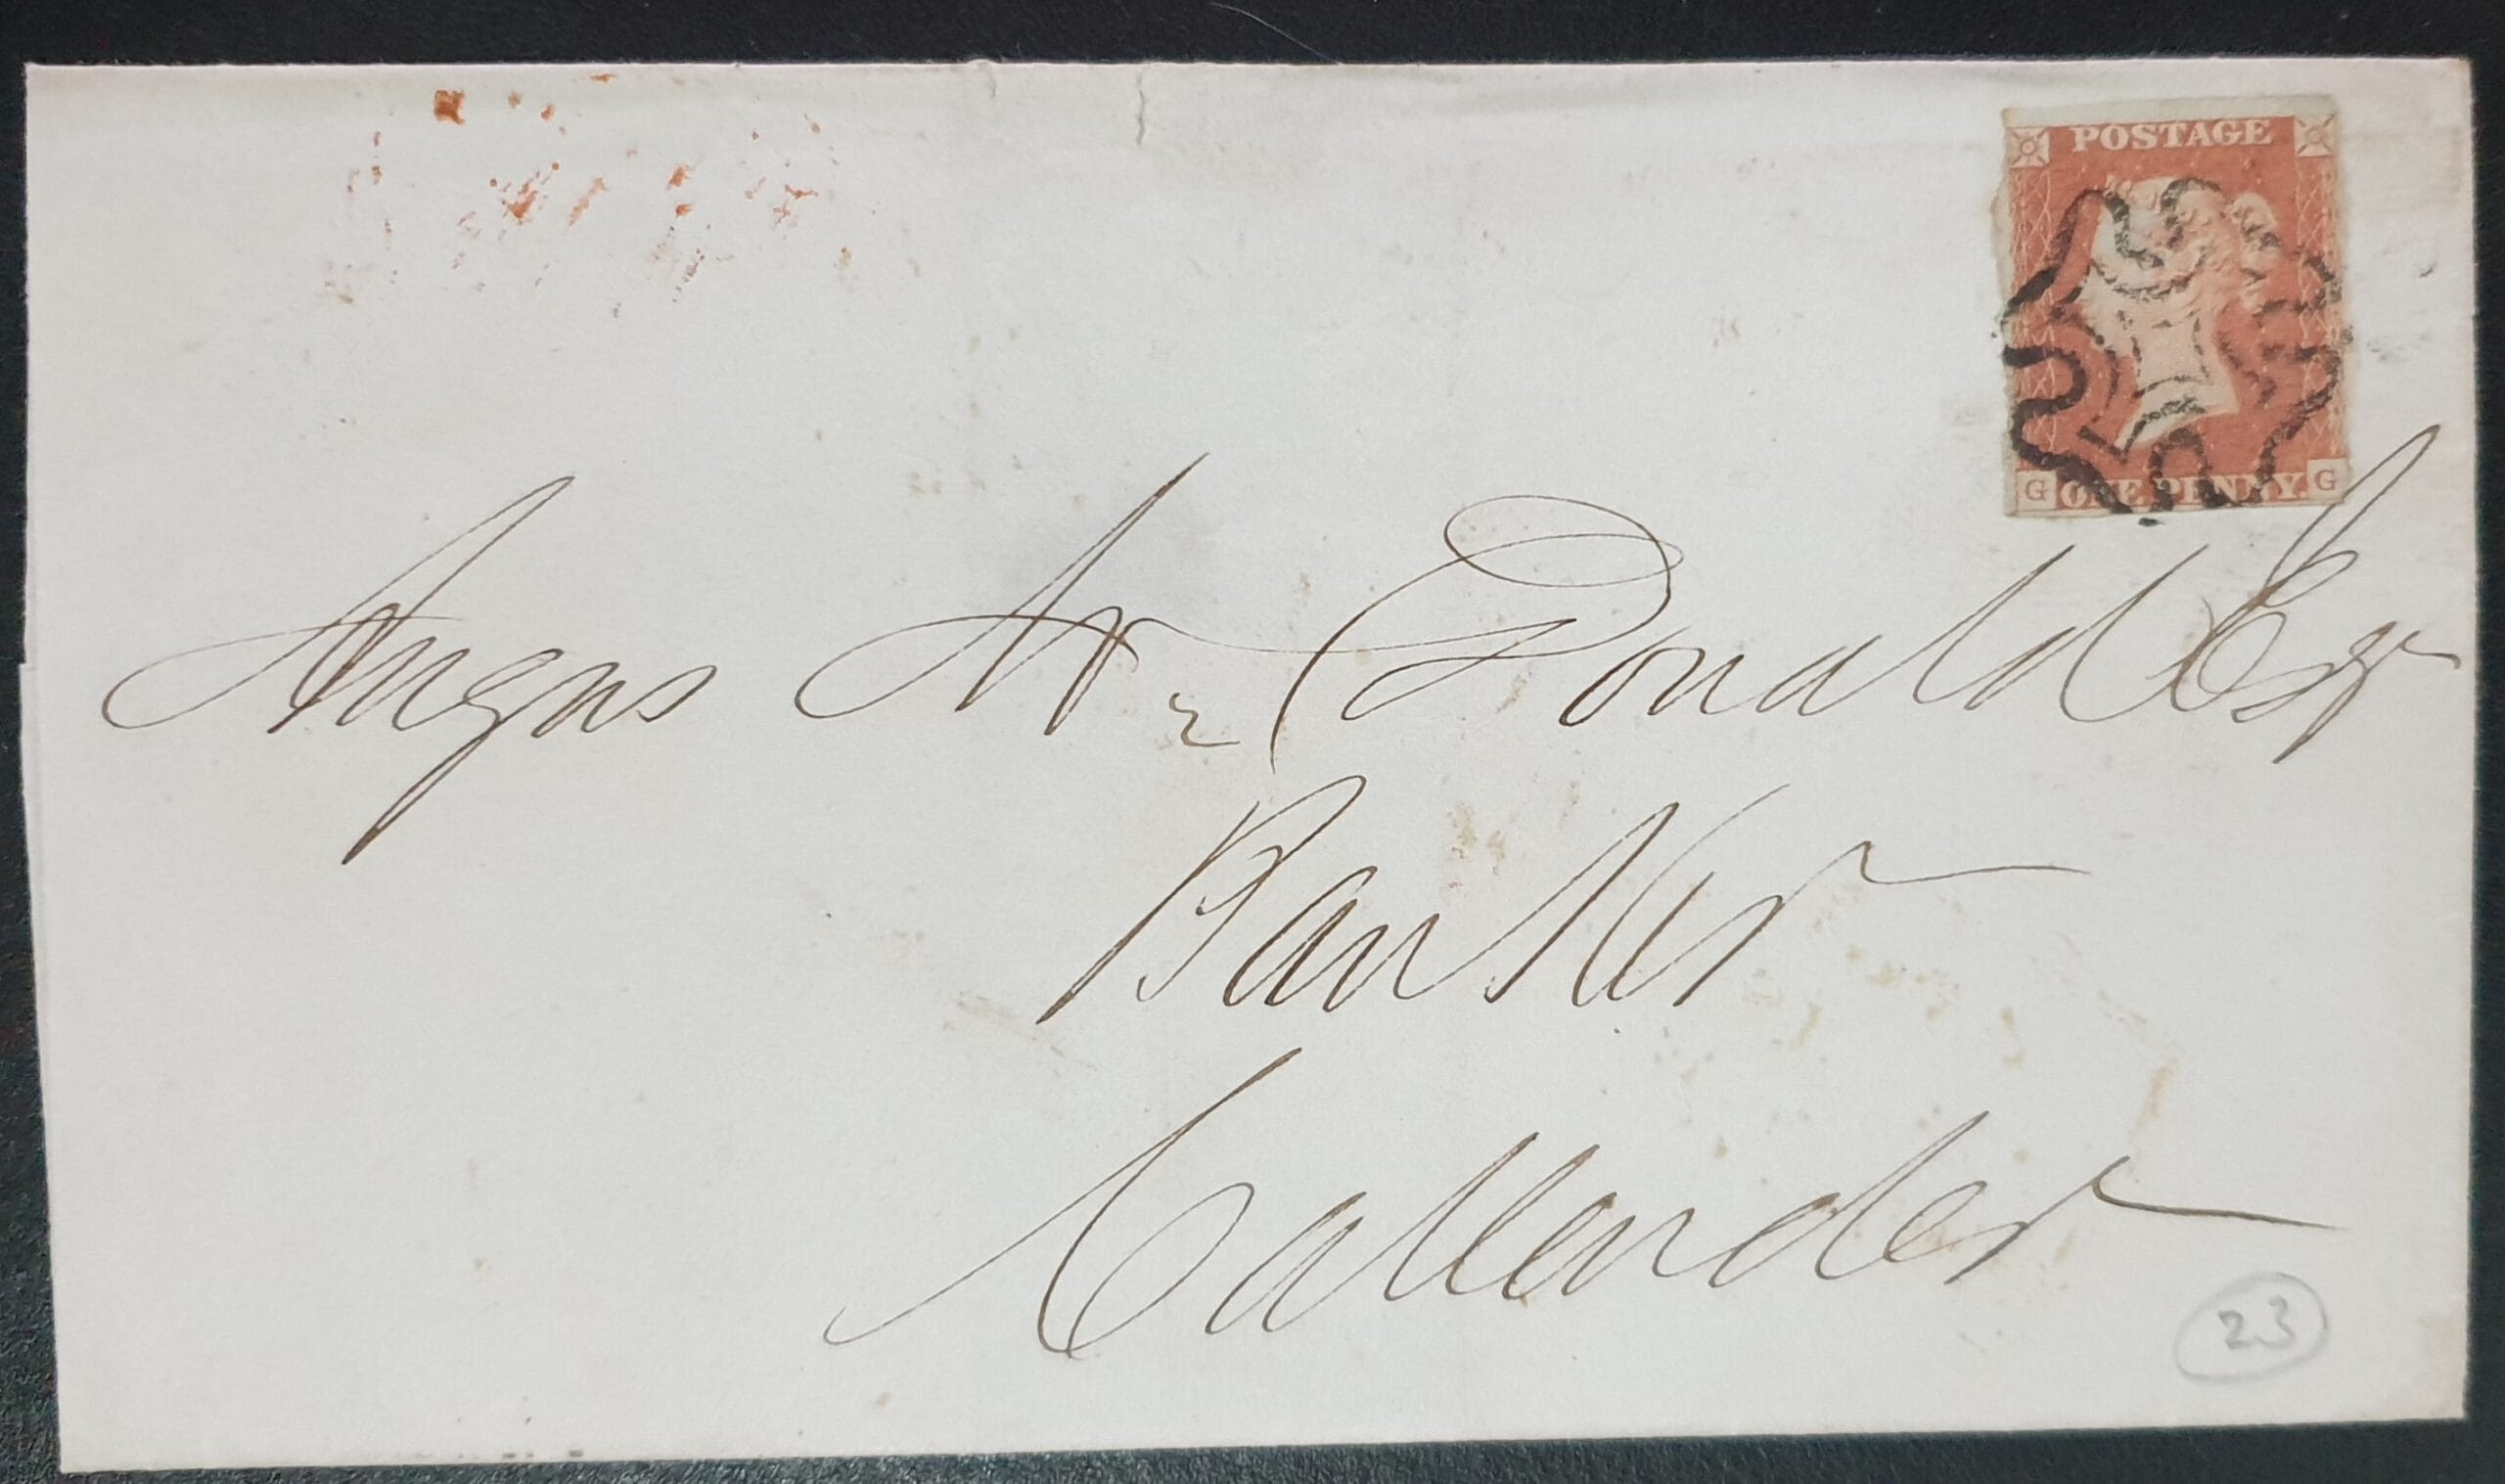 POSTAGE
G ONE PENNY. G
Angus Mc Donald Esqr
Banker
Callender
23